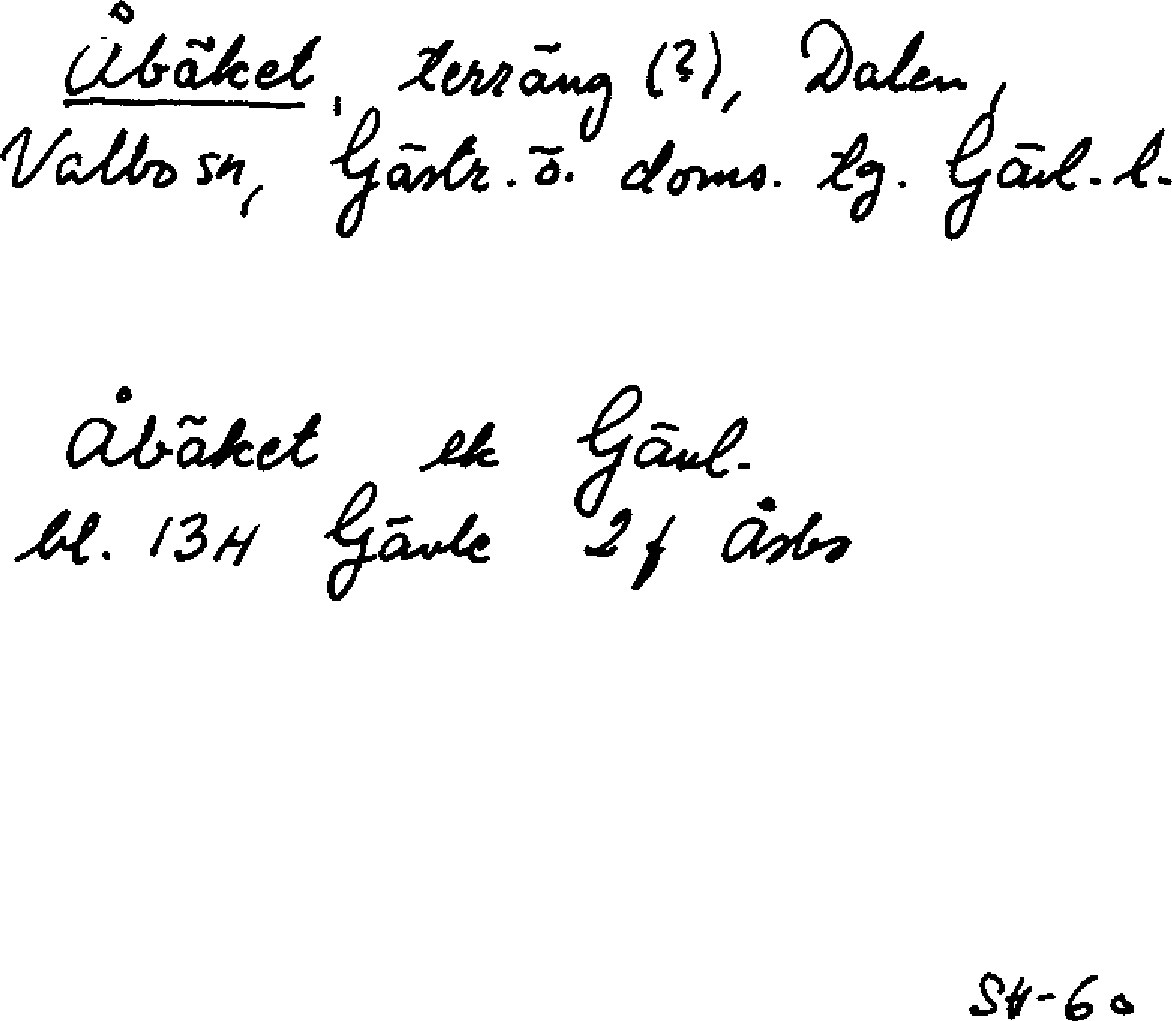 Åbäket, terräng (?), Dalen,
Valbo sn, Gästr. ö. doms. tg. Gävl. l.
Åbäket ek Gävl.
bl. 13H Gävle 2f Åsbo